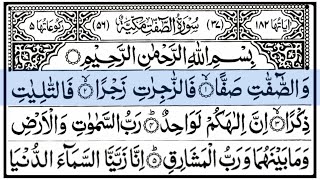 اٰیَاتُهَا ١٨٢ (٣٧) سُوْرَةُ الصّٰٓفّٰتِ مَكِّیَّةٌ (٥٦) رُكُوْعَاتُهَا ٥
بِسْمِ اللّٰهِ الرَّحْمٰنِ الرَّحِیْمِ
وَالصّٰٓفّٰتِ صَفًّا ١ فَالزّٰجِرٰتِ زَجْرًا ٢ فَالتّٰلِیٰتِ
ذِكْرًا ٣ اِنَّ اِلٰهَكُمْ لَوَاحِدٌ ٤ رَبُّ السَّمٰوٰتِ وَالْاَرْضِ
وَمَا بَیْنَهُمَا وَرَبُّ الْمَشَارِقِ ٥ اِنَّا زَیَّنَّا السَّمَآءَ الدُّنْیَا